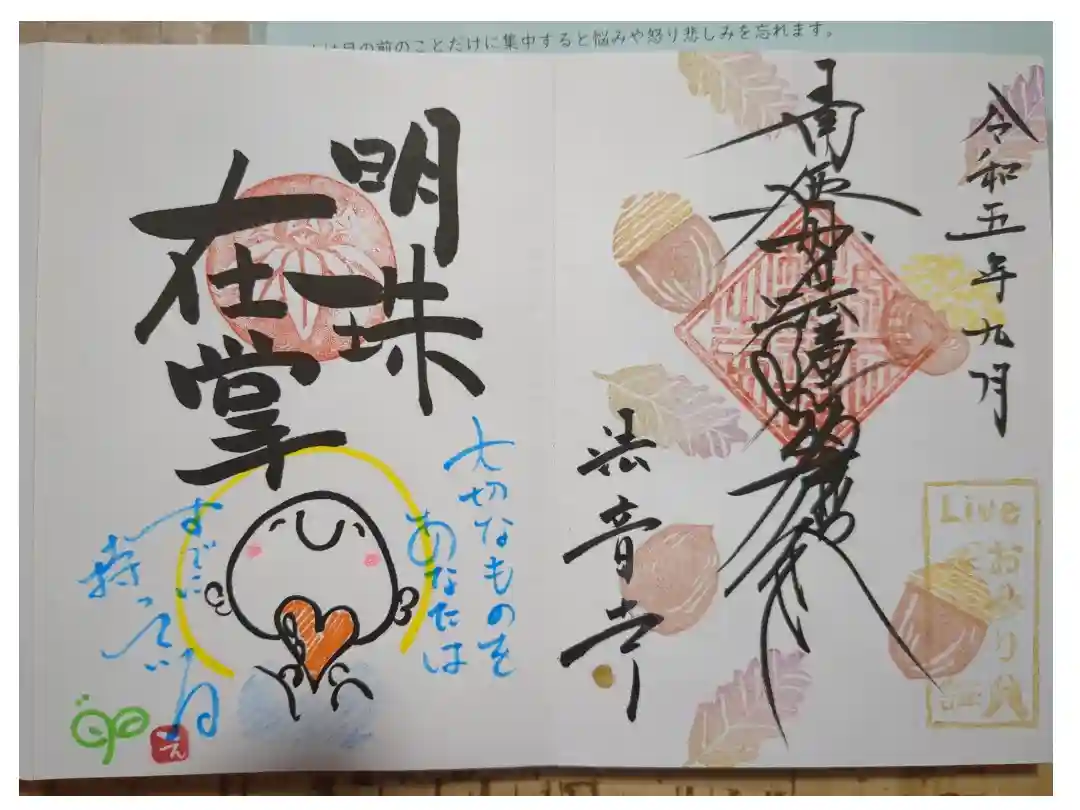 は目の前のことだけに集中すると悩みや怒り悲しみを忘れます。
令和五年九月
南無妙法蓮華経
法音寺
Live
明珠
在掌
大切なものを
あなたは
すでに
持っている